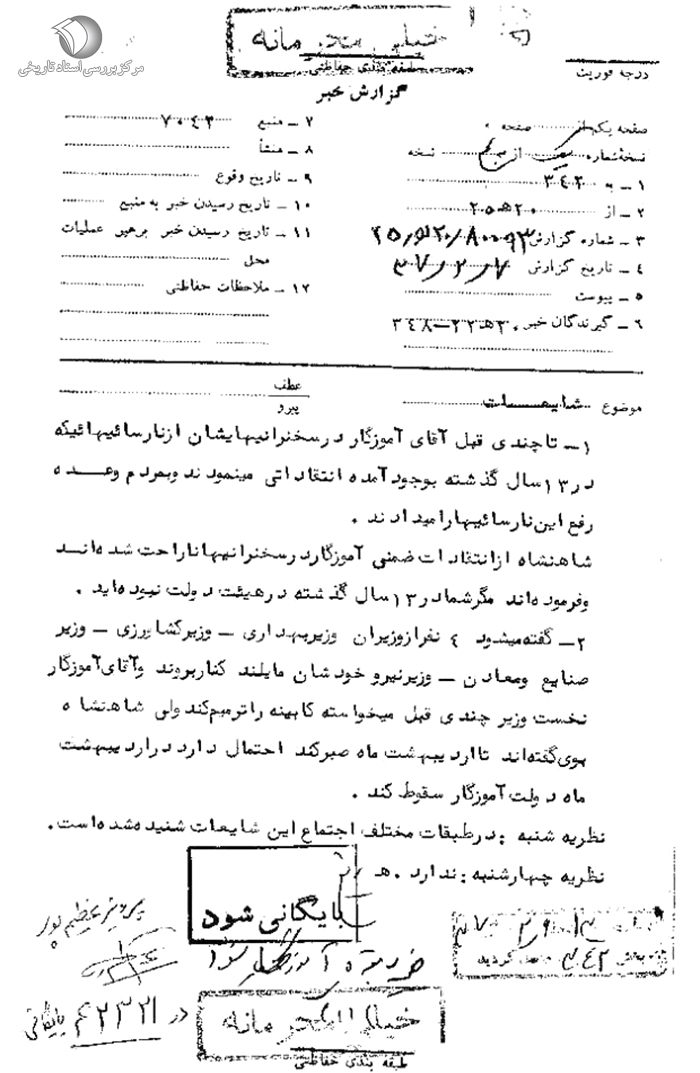 مرکز بررسی اسناد تاریخی
خیلی محرمانه
طبقه بندی حفاظتی
درجه فوریت
گزارش خبر
صفحه یکم از صفحه
نسخه شماره یک از نسخه
۱ – به ۳۴۲
۲ – از ۲۰ ه‍ ۲۵
۳ – شماره گزارش
۴ – تاریخ گزارش ۳۷/۲/۷
۵ – پیوست
۶ – گیرندگان خبر ۳۰ه‍ ۲۲–۳۴۸
۷ – منبع ۷۰۴۳
۸ – منشأ
۹ – تاریخ وقوع
۱۰ – تاریخ رسیدن خبر به منبع
۱۱ – تاریخ رسیدن خبر برهبر عملیات
محل
۱۲ – ملاحظات حفاظتی
موضوع شایعات
عطف
پیرو
۱– تاچندی قبل آقای آموزگار درسخنرانیهایشان ازنارسائیهائیکه
در۱۳سال گذشته بوجودآمده انتقاداتی مینمودند وبمردم وعده
رفع این نارسائیهارامیدادند .
شاهنشاه ازانتقادات ضمنی آموزگاردرسخنرانیهاناراحت شده‌اند
وفرموده‌اند مگرشمادر۱۳سال گذشته درهیئت دولت نبوده‌اید .
۲– گفته‌میشود ۴ نفرازوزیران وزیربهداری – وزیرکشاورزی – وزیر
صنایع ومعادن – وزیرنیرو خودشان مایلند کناربروند وآقای‌آموزگار
نخست وزیر چندی قبل میخواسته کابینه راترمیم‌کند ولی شاهنشاه
بوی‌گفته‌اند تااردیبهشت ماه صبرکند احتمال دارد دراردیبهشت
ماه دولت آموزگار سقوط کند .
نظریه شنبه : درطبقات مختلف اجتماع این شایعات شنیده‌شده‌است .
نظریه چهارشنبه : ندارد . ه‍
بایگانی شود
پرویز عظیم پور
در پرونده آموزگار
در ۲۳۲۱ بایگانی
به بخش ۳۴۲ گردید
خیلی محرمانه
طبقه بندی حفاظتی